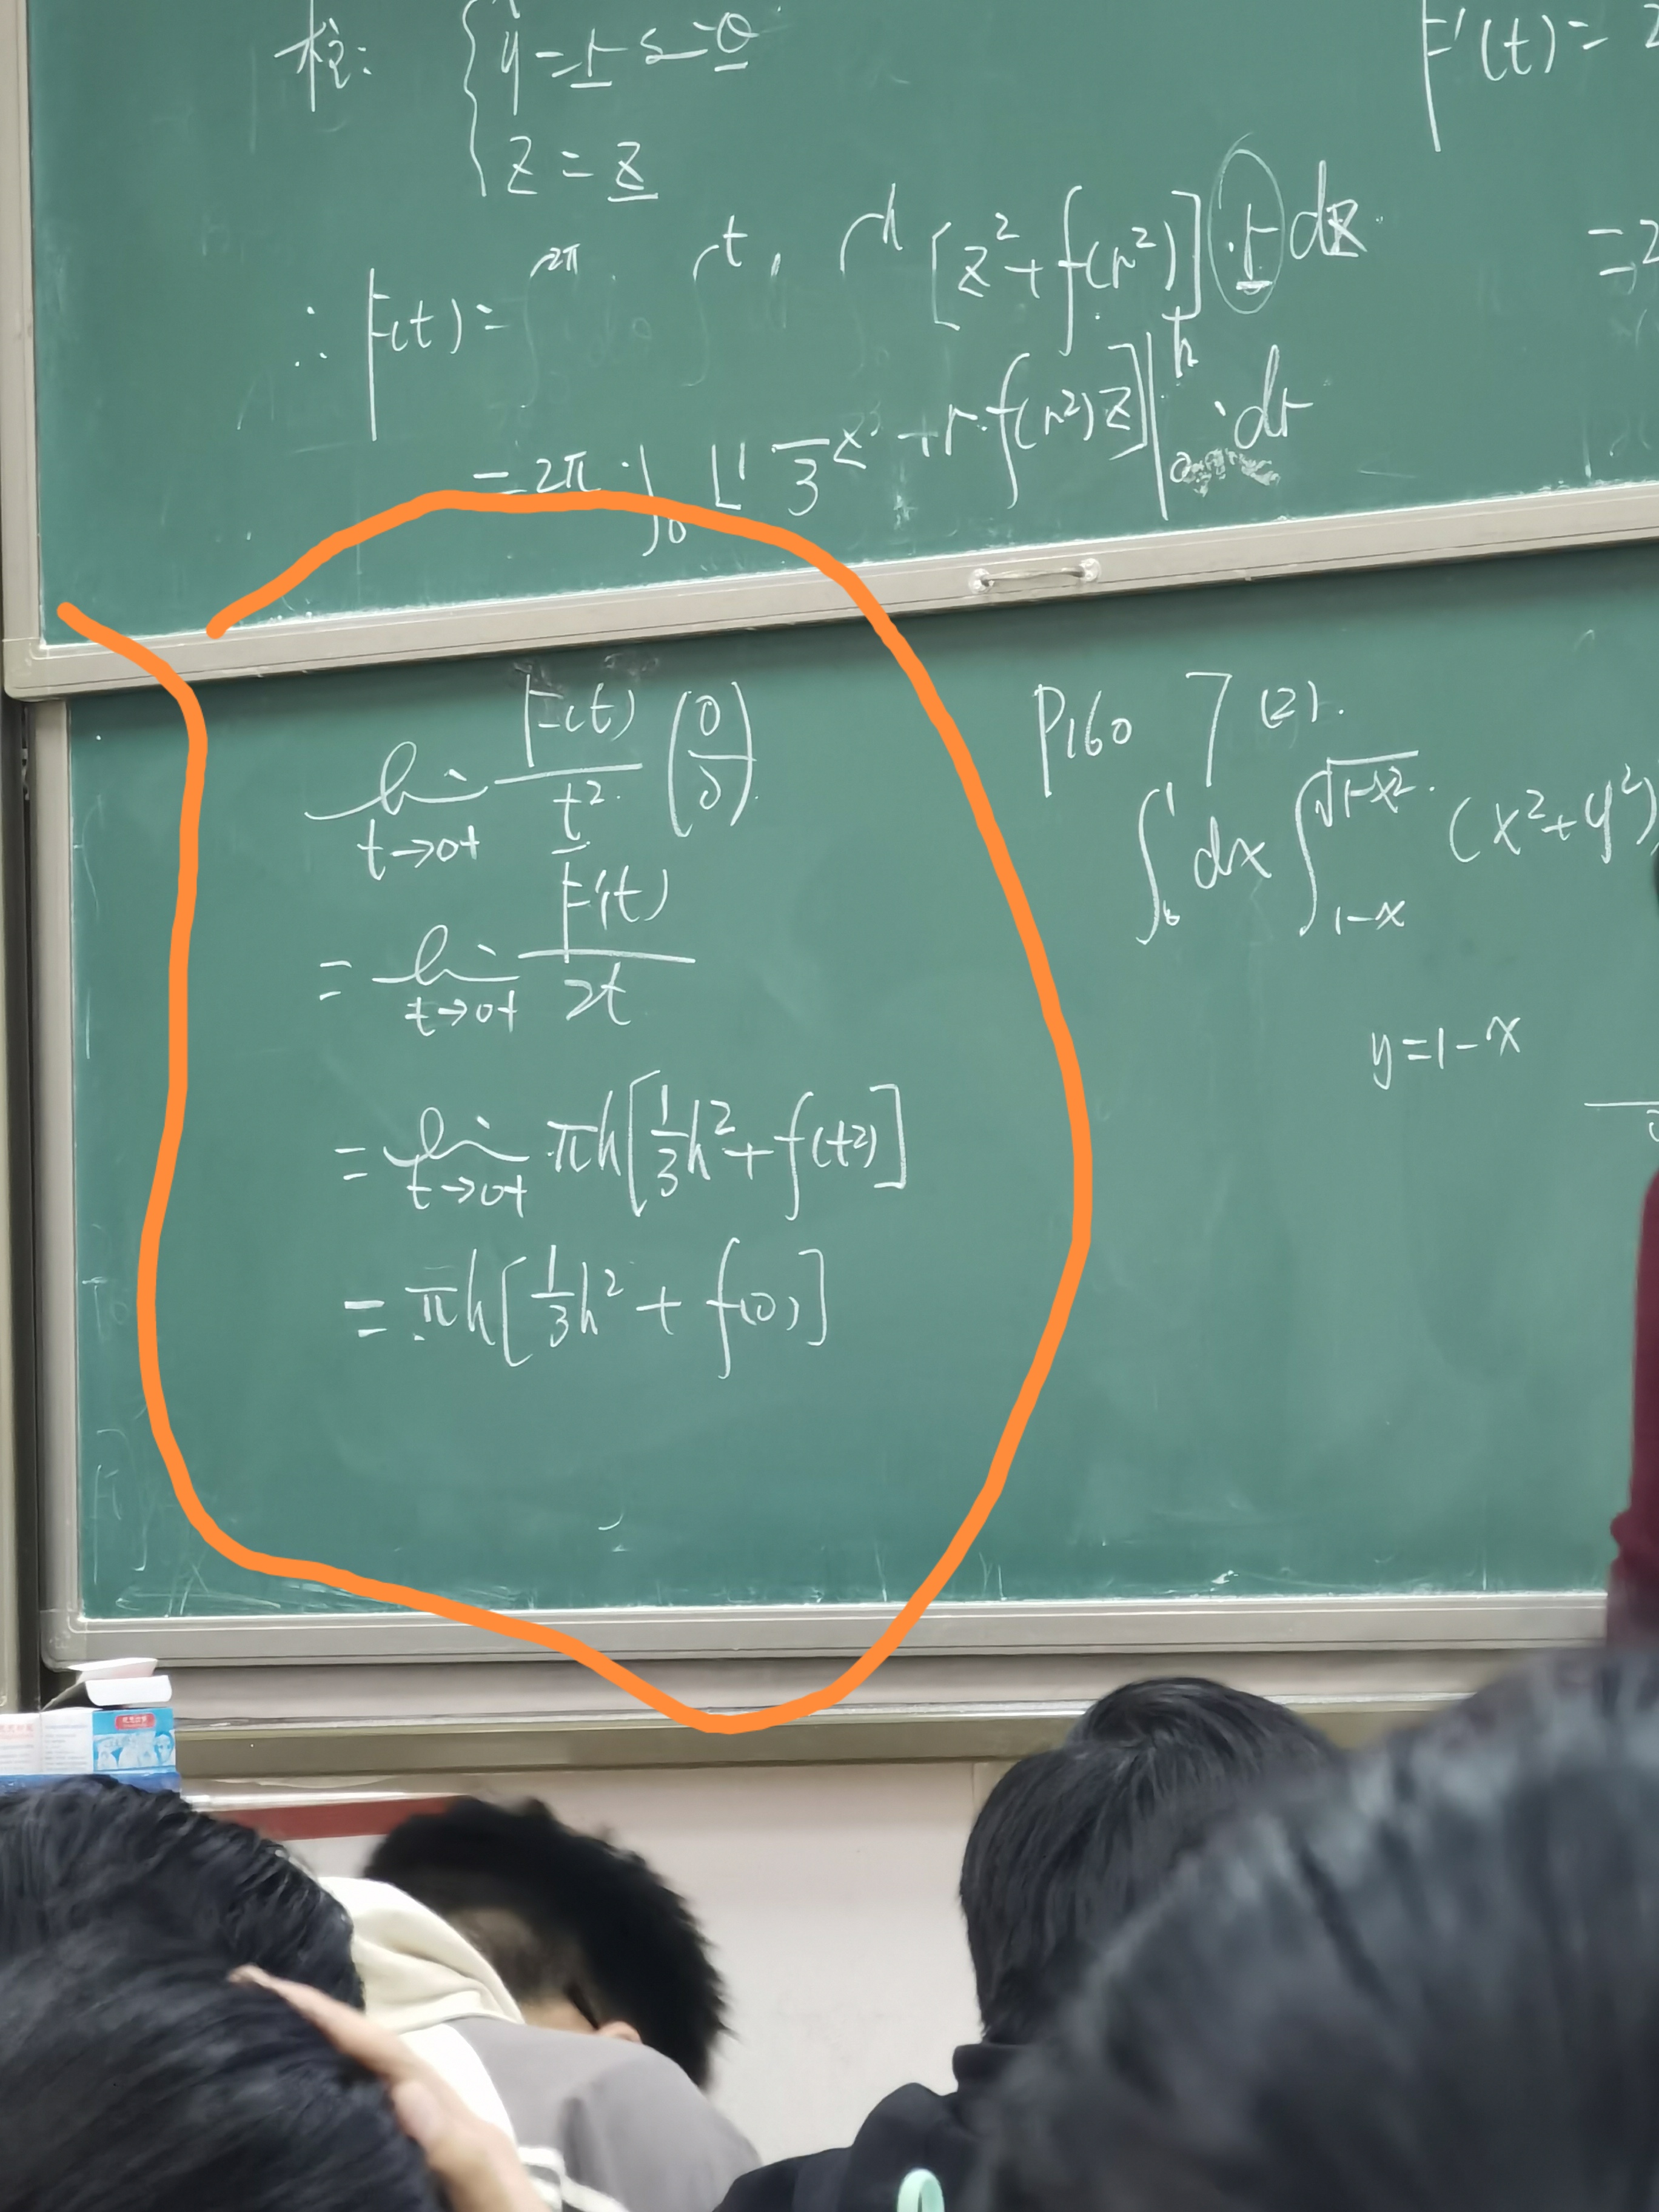 柱: { y = r sinθ
z = z
∴ F(t) = ∫^2π ∫^t ∫^h [z² + f(r²)] · r dz
= 2π · ∫₀ [r/3 z³ + r · f(r²) z] |₀^h · dr
F'(t) = 2
= 2
lim t→0+ F(t)/t² (0/0)
= lim t→0+ F'(t)/2t
= lim t→0+ πh[1/3 h² + f(t²)]
= πh[1/3 h² + f(0)]
P160 7 (2).
∫₀¹ dx ∫_{1-x}^{√(1-x²)} (x² + y²)
y = 1 - x